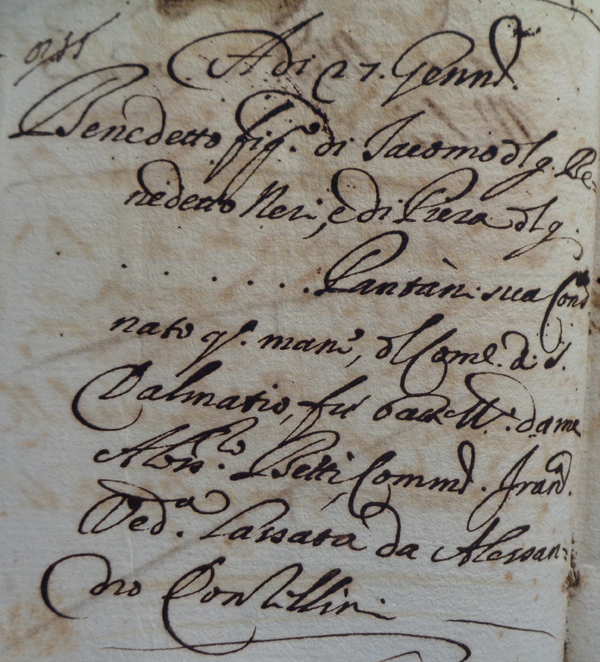 Adi 27. Genn.o
Benedetto fig.o di Iacomo dl q. Be-
nedetto Neri, e di Piera dl q.
. . . . . . . Pantani sua Cons.
nato q.o man.e, dl Com.e di S.
Dalmatio, fù batt.o da me
Aless.o Betti, Comm.e Fran.a
Ved.a lassata da Alessan-
dro Contillini